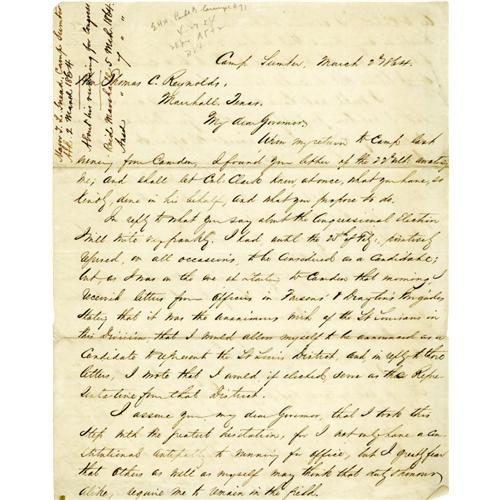 Major T. L. Snead, Camp Sumter
Ark. 2 March 1864.
About his running for Congress
Recd. Marshall 5 Mch. 1864.
Camp Sumter, March 2d 1864.
Hon. Thomas C. Reynolds,
Marshall, Texas.
My dear Governor,
Upon my return to Camp last
evening from Camden, I found your letter of the 22d ult. awaiting
me; and shall let Col. Clark know, at once, what you have, so
kindly, done in his behalf, and what you propose to do.
In reply to what you say about the Congressional Election
I will write very frankly. I had, until the 25th of Feby., positively
refused, on all occasions, to be considered as a Candidate;
but, as I was on the eve of starting to Camden that morning, I
received letters from officers in Parsons' & Drayton's Brigades
stating that it was the unanimous wish of the St. Louisans in
this Division, that I would allow myself to be announced as a
Candidate to represent the St. Louis District, and in reply to those
letters, I wrote that I would if elected, serve as the Repre-
sentative from that District.
I assure you my dear Governor, that I took this
step with the greatest hesitation, for I not only have a con-
stitutional antipathy to running for office, but I greatly fear
that others as well as myself may think that duty & honour
alike, require me to remain in the field.